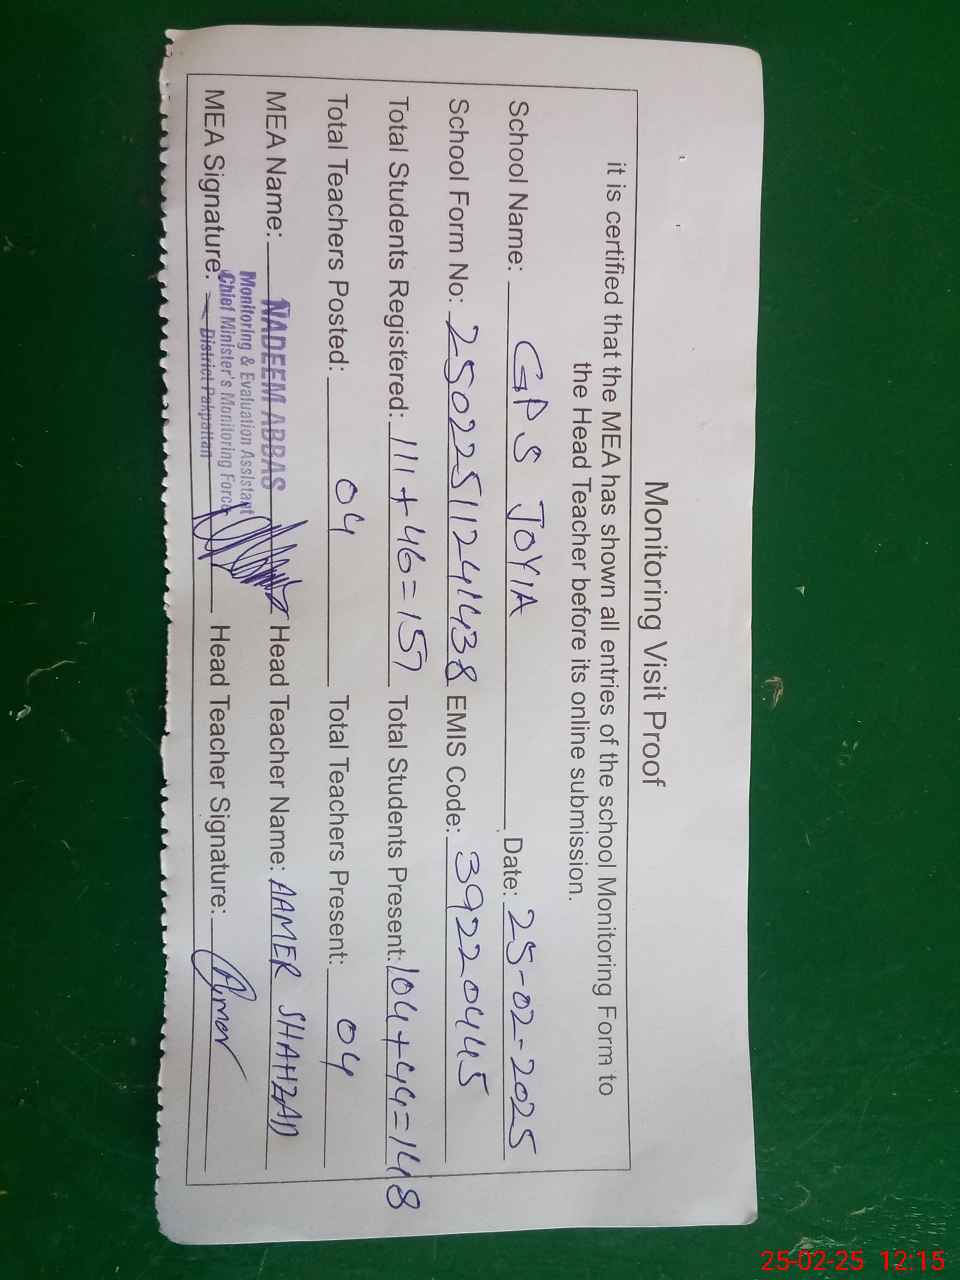 Monitoring Visit Proof
it is certified that the MEA has shown all entries of the school Monitoring Form to
the Head Teacher before its online submission.
School Name: GPS JOYIA Date: 25-02-2025
School Form No: 25022511241438 EMIS Code: 39220445
Total Students Registered: 111+46=157 Total Students Present: 104+44=148
Total Teachers Posted: 04 Total Teachers Present: 04
MEA Name: NADEEM ABBAS Head Teacher Name: AAMER SHAHZAD
Monitoring & Evaluation Assistant
Chief Minister's Monitoring Force
MEA Signature: District Pakpattan Head Teacher Signature: Amer
25-02-25 12:15